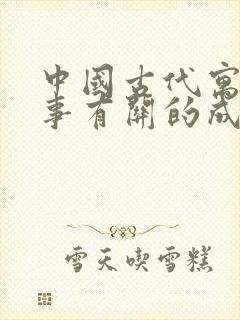 中國古代寓
事有關的成
雪天喫雪糕